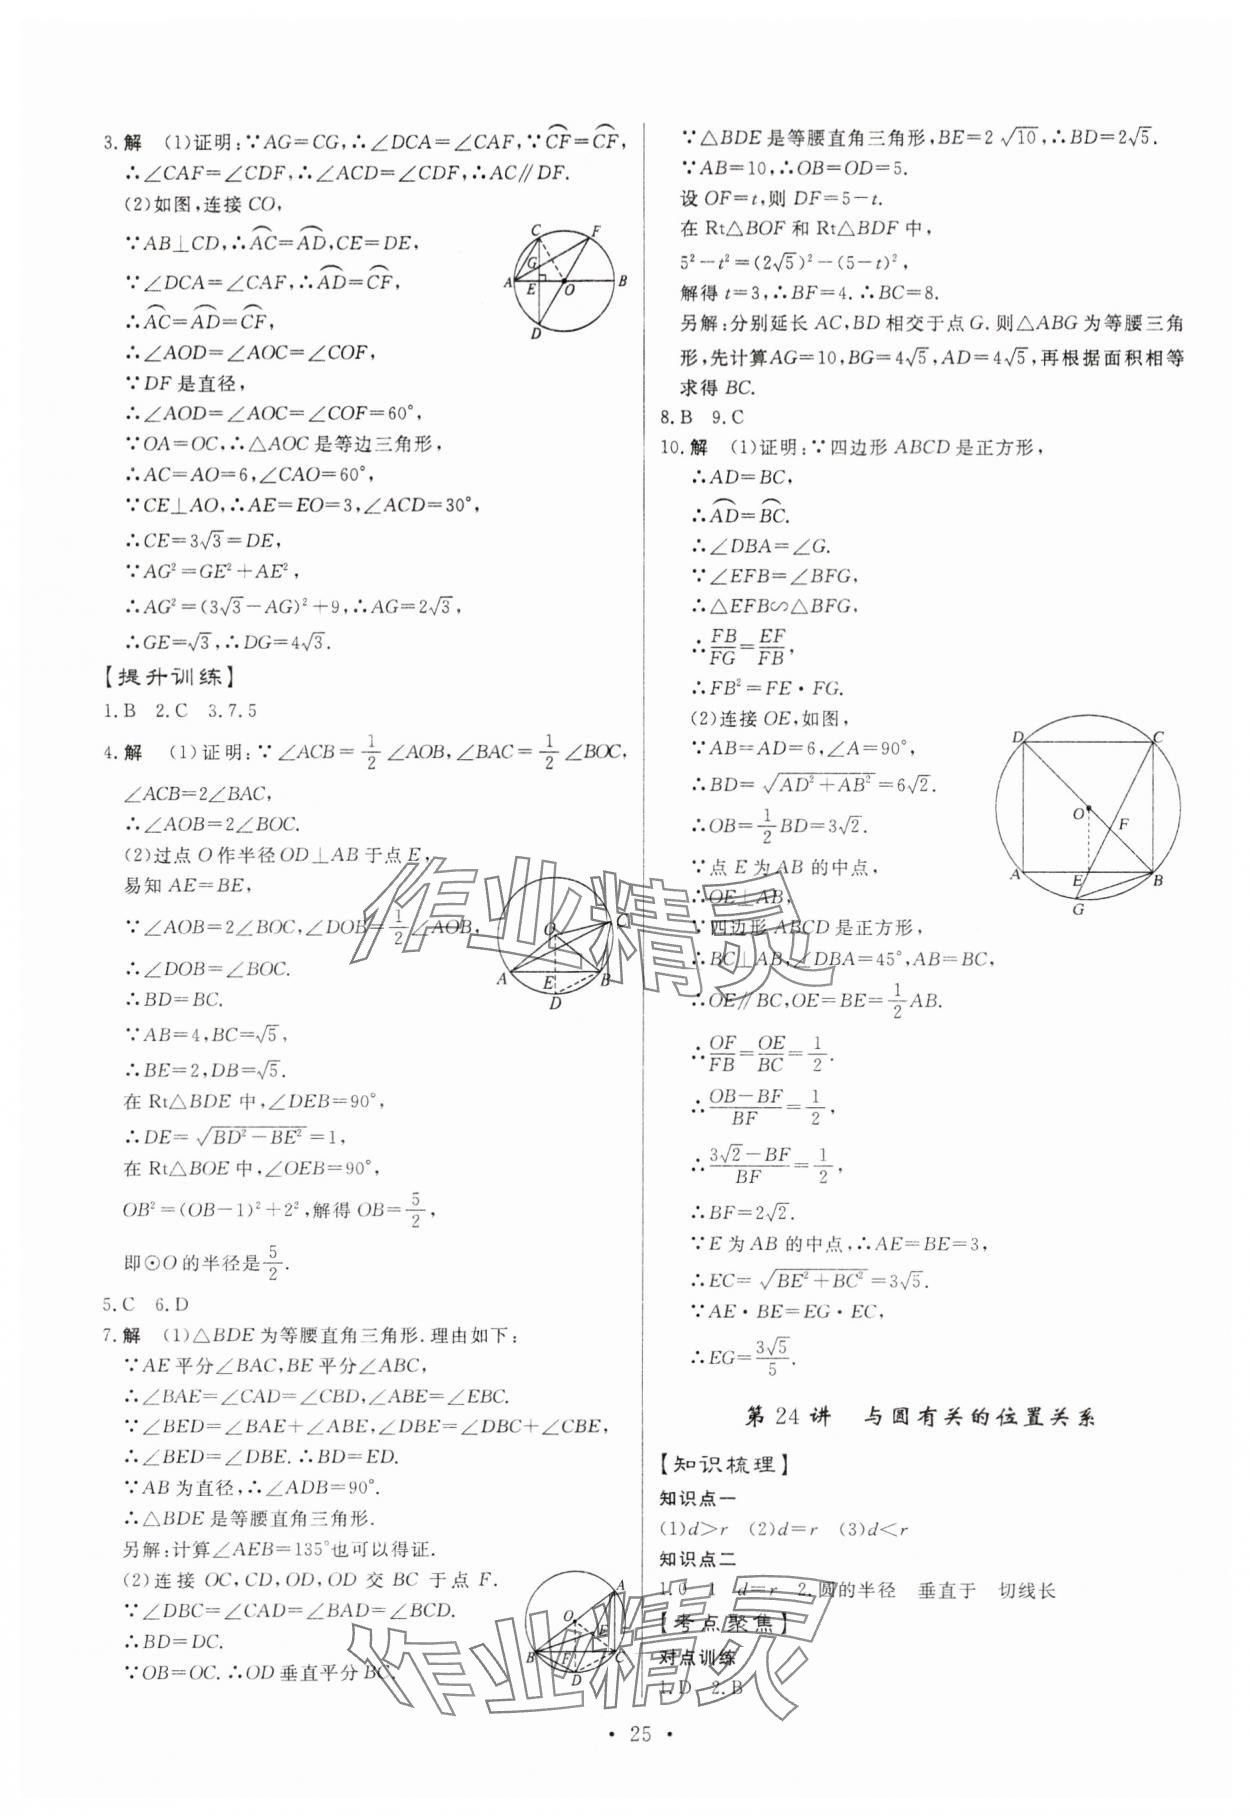 3.解 (1)证明:∵AG=CG,∴∠DCA=∠CAF,∵⌒CF=⌒CF,
∴∠CAF=∠CDF,∴∠ACD=∠CDF,∴AC∥DF.
(2)如图,连接CO,
∵AB⊥CD,∴⌒AC=⌒AD,CE=DE,
∵∠DCA=∠CAF,∴⌒AD=⌒CF,
∴⌒AC=⌒AD=⌒CF,
∴∠AOD=∠AOC=∠COF,
∵DF是直径,
∴∠AOD=∠AOC=∠COF=60°,
∵OA=OC,∴△AOC是等边三角形,
∴AC=AO=6,∠CAO=60°,
∵CE⊥AO,∴AE=EO=3,∠ACD=30°,
∴CE=3√3=DE,
∵AG²=GE²+AE²,
∴AG²=(3√3-AG)²+9,∴AG=2√3,
∴GE=√3,∴DG=4√3.
C F G A E O B D
【提升训练】
1.B 2.C 3.7.5
4.解 (1)证明:∵∠ACB=1/2∠AOB,∠BAC=1/2∠BOC,
∠ACB=2∠BAC,
∴∠AOB=2∠BOC.
(2)过点O作半径OD⊥AB于点E,
易知AE=BE,
∵∠AOB=2∠BOC,∠DOB=1/2∠AOB,
∴∠DOB=∠BOC.
∴BD=BC.
∵AB=4,BC=√5,
∴BE=2,DB=√5.
在Rt△BDE中,∠DEB=90°,
∴DE=√(BD²-BE²)=1,
在Rt△BOE中,∠OEB=90°,
OB²=(OB-1)²+2²,解得OB=5/2,
即⊙O的半径是5/2.
O C A E B D
5.C 6.D
7.解 (1)△BDE为等腰直角三角形.理由如下:
∵AE平分∠BAC,BE平分∠ABC,
∴∠BAE=∠CAD=∠CBD,∠ABE=∠EBC.
∵∠BED=∠BAE+∠ABE,∠DBE=∠DBC+∠CBE,
∴∠BED=∠DBE.∴BD=ED.
∵AB为直径,∴∠ADB=90°.
∴△BDE是等腰直角三角形.
另解:计算∠AEB=135°也可以得证.
(2)连接OC,CD,OD,OD交BC于点F.
∵∠DBC=∠CAD=∠BAD=∠BCD.
∴BD=DC.
∵OB=OC.∴OD垂直平分BC.
A O E B F C D
∵△BDE是等腰直角三角形,BE=2√10,∴BD=2√5.
∵AB=10,∴OB=OD=5.
设OF=t,则DF=5-t.
在Rt△BOF和Rt△BDF中,
5²-t²=(2√5)²-(5-t)²,
解得t=3,∴BF=4.∴BC=8.
另解:分别延长AC,BD相交于点G.则△ABG为等腰三角
形,先计算AG=10,BG=4√5,AD=4√5,再根据面积相等
求得BC.
8.B 9.C
10.解 (1)证明:∵四边形ABCD是正方形,
∴AD=BC,
∴⌒AD=⌒BC.
∴∠DBA=∠G.
∵∠EFB=∠BFG,
∴△EFB∽△BFG,
∴FB/FG=EF/FB,
∴FB²=FE·FG.
(2)连接OE,如图,
∵AB=AD=6,∠A=90°,
∴BD=√(AD²+AB²)=6√2.
∴OB=1/2BD=3√2.
∵点E为AB的中点,
∴OE⊥AB,
∵四边形ABCD是正方形,
∴BC⊥AB,∠DBA=45°,AB=BC,
∴OE∥BC,OE=BE=1/2AB.
∴OF/FB=OE/BC=1/2.
∴(OB-BF)/BF=1/2,
∴(3√2-BF)/BF=1/2,
∴BF=2√2.
∵E为AB的中点,∴AE=BE=3,
∴EC=√(BE²+BC²)=3√5.
∵AE·BE=EG·EC,
∴EG=3√5/5.
D C O F A E B G
第24讲 与圆有关的位置关系
【知识梳理】
知识点一
(1)d>r (2)d=r (3)d<r
知识点二
1.0 1 d=r 2.圆的半径 垂直于 切线长
【考点聚焦】
对点训练
1.D 2.B
·25·
作业精灵
作业精灵